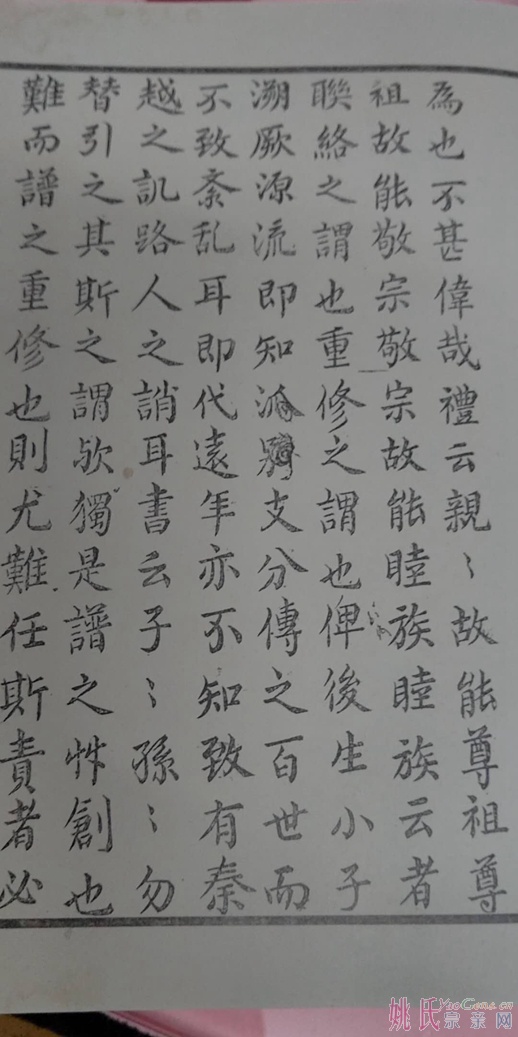 為也不甚偉哉禮云親〻故能尊祖尊
祖故能敬宗敬宗故能睦族睦族云者
聯絡之謂也重修之謂也俾後生小子
溯厥源流即知派别支分傳之百世而
不致紊乱耳即代遠年亦不知致有秦
越之訊路人之誚耳書云子〻孫〻勿
替引之其斯之謂欤獨是譜之艸創也
難而譜之重修也則尤難任斯責者必
姚氏宗亲网
YaoGens.cn